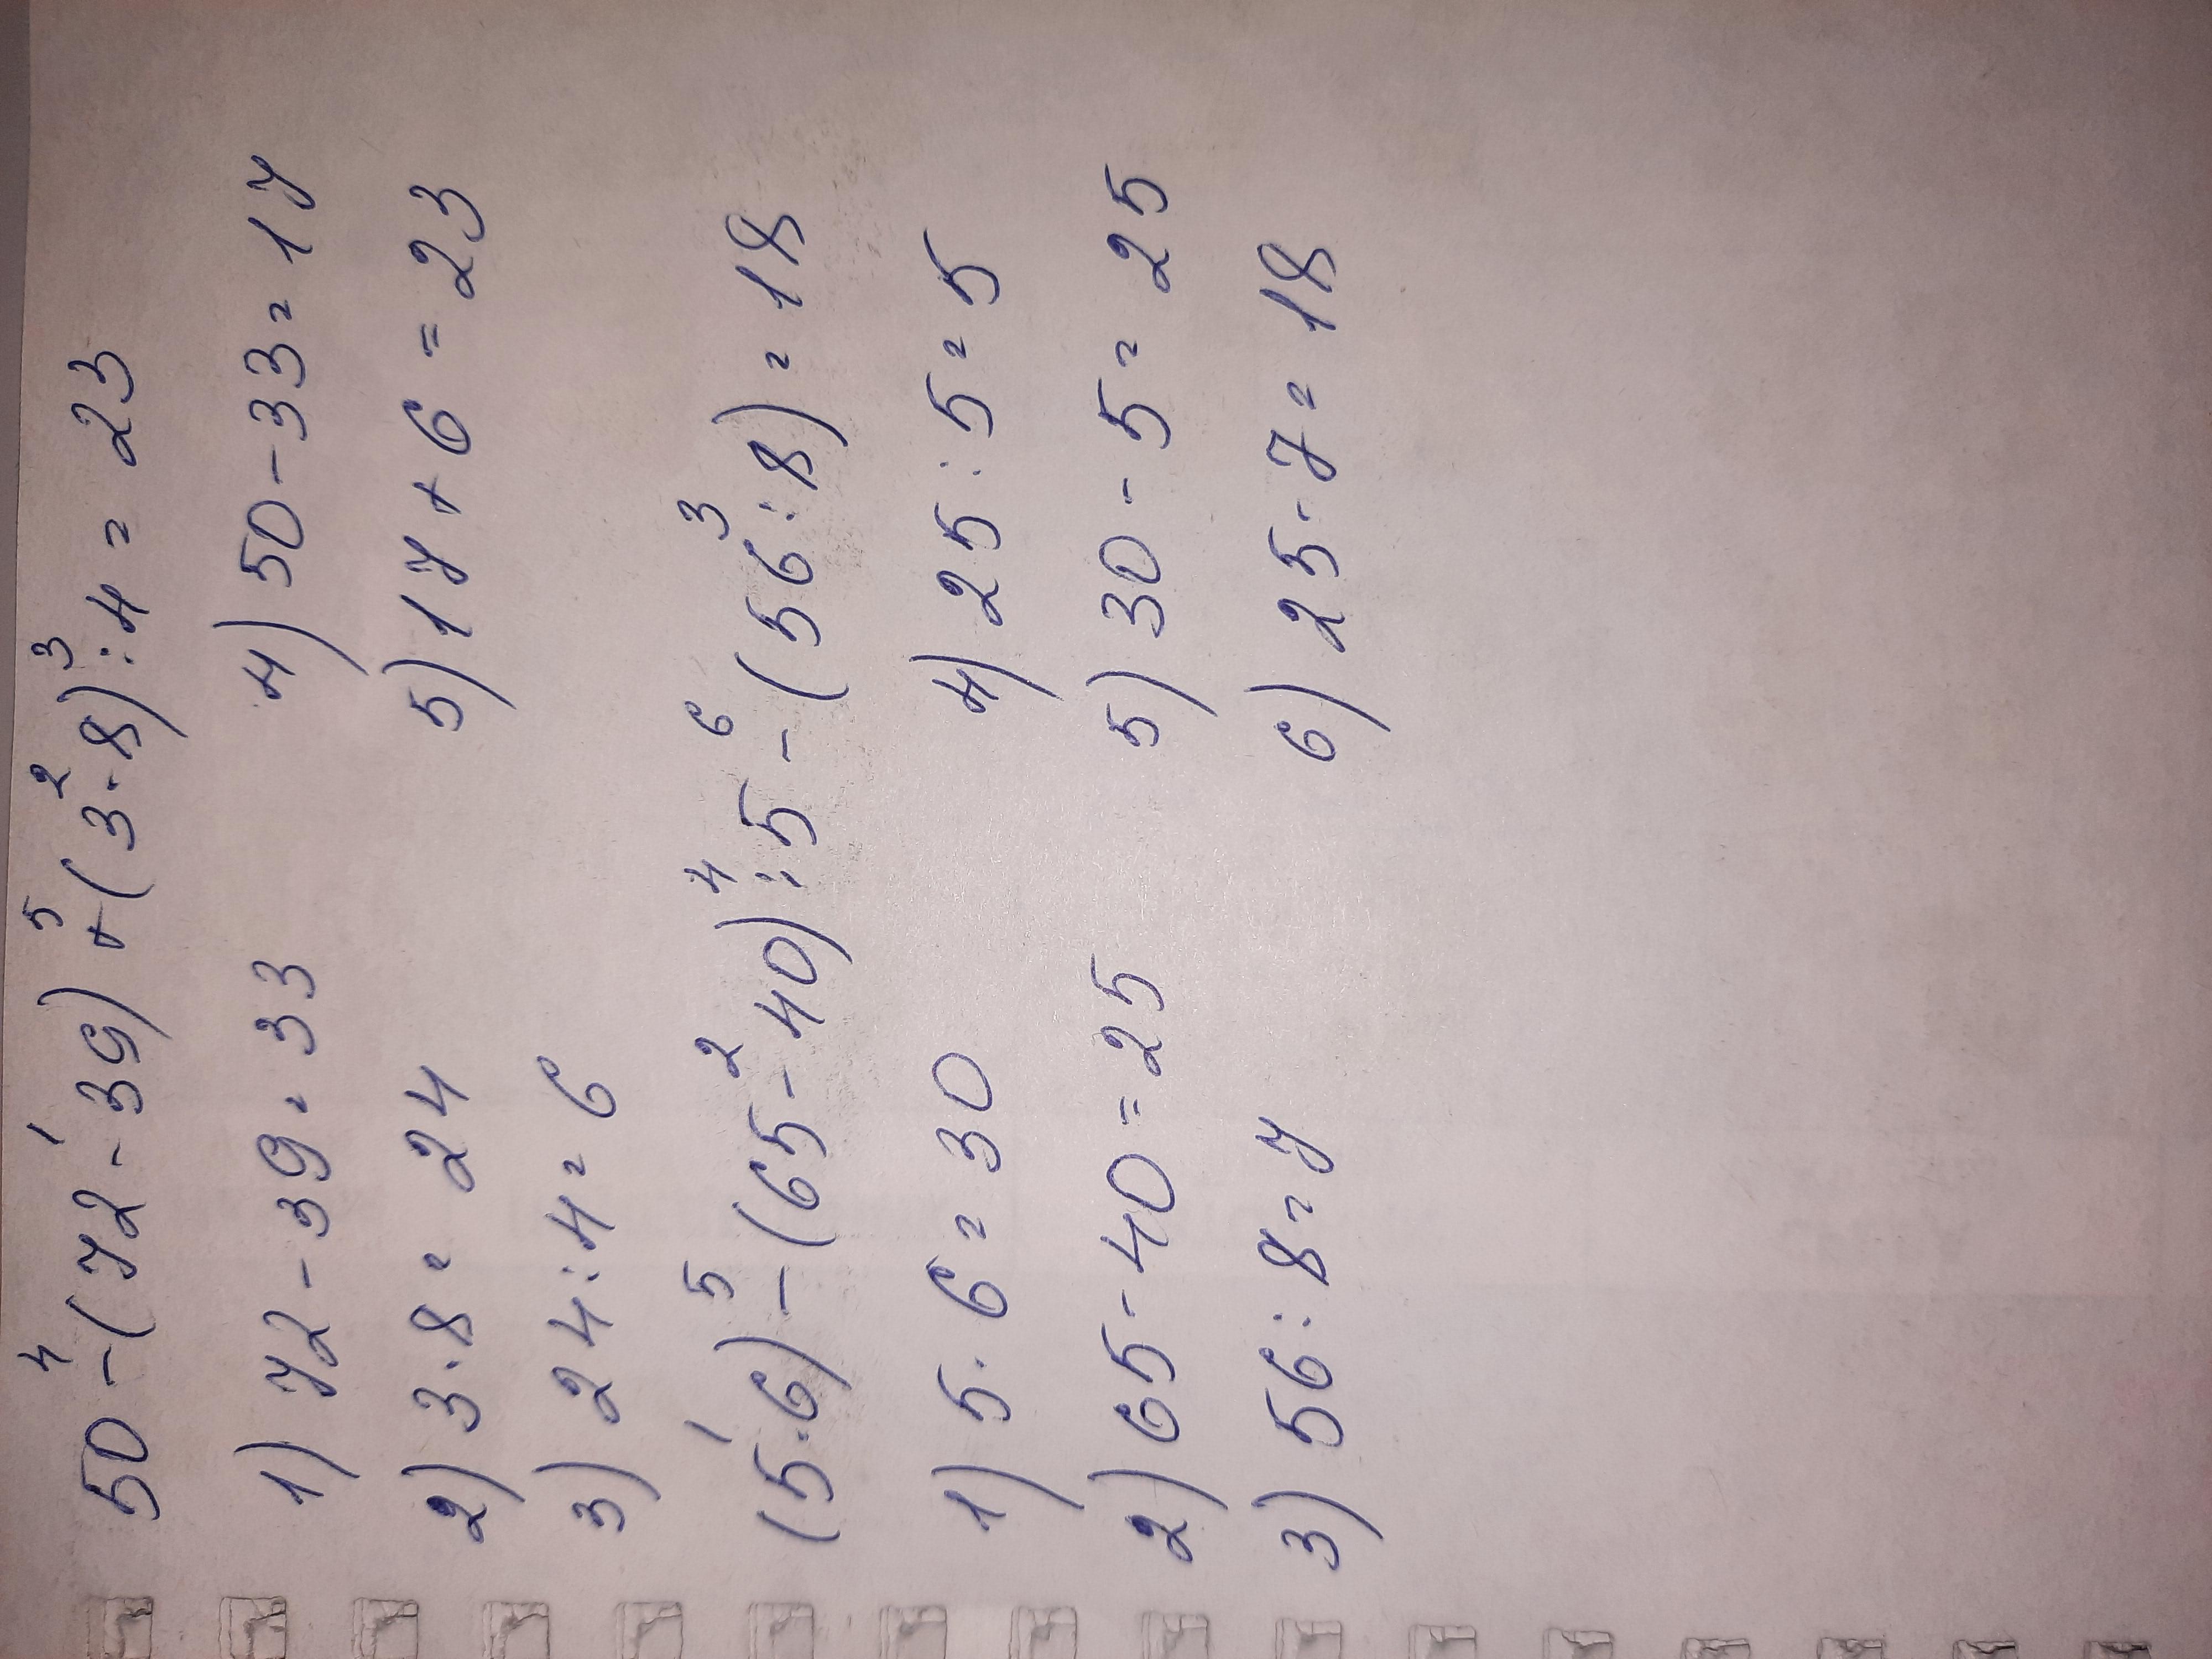 50 - (72 - 39) + (3 · 8) : 4 = 23
4 1 5 2 3
1) 72 - 39 = 33 4) 50 - 33 = 17
2) 3 · 8 = 24 5) 17 + 6 = 23
3) 24 : 4 = 6
(5 · 6) - (65 - 40) : 5 - (56 : 8) = 18
1 5 2 4 6 3
1) 5 · 6 = 30 4) 25 : 5 = 5
2) 65 - 40 = 25 5) 30 - 5 = 25
3) 56 : 8 = 7 6) 25 - 7 = 18